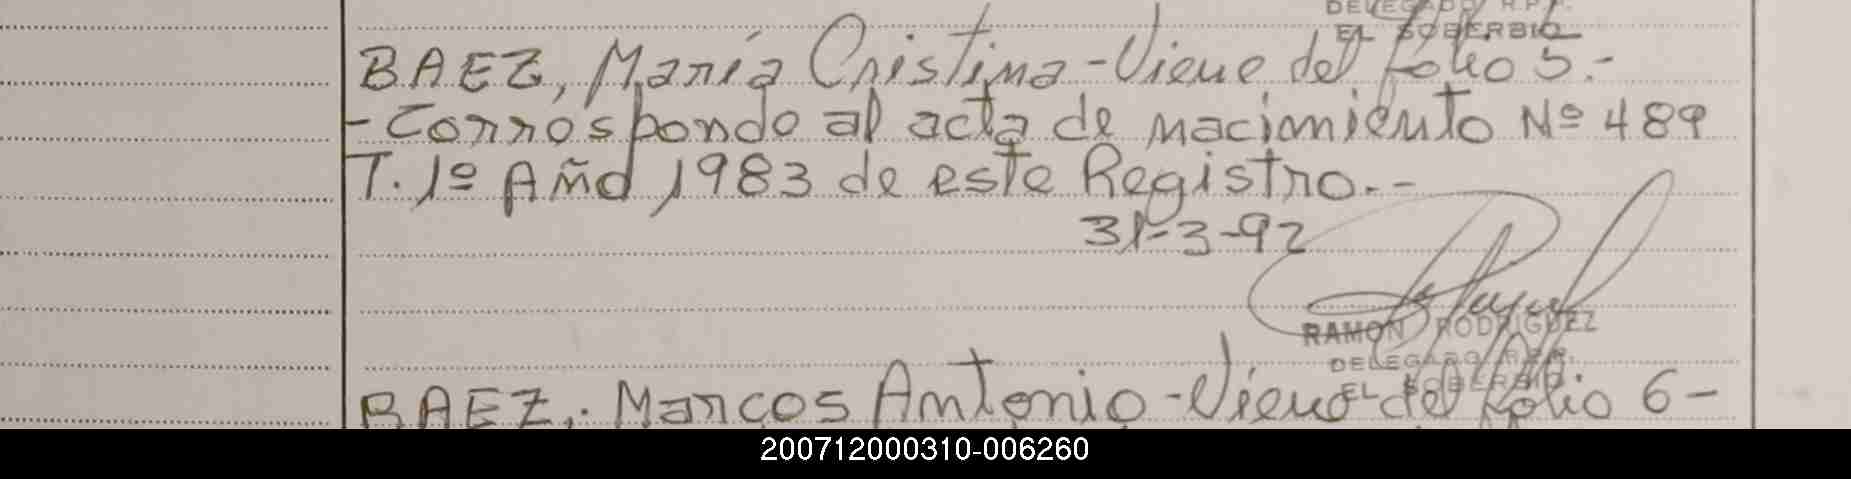 DELEGADO R.P.P.
EL SOBERBIO
BAEZ, María Cristina - Viene del folio 5.-
- Corresponde al acta de nacimiento Nº 489
T. 1º Año 1983 de este Registro.-
31-3-92
RAMON RODRIGUEZ
DELEGADO R.P.P.
EL SOBERBIO
BAEZ, Marcos Antonio - Viene del folio 6-
200712000310-006260